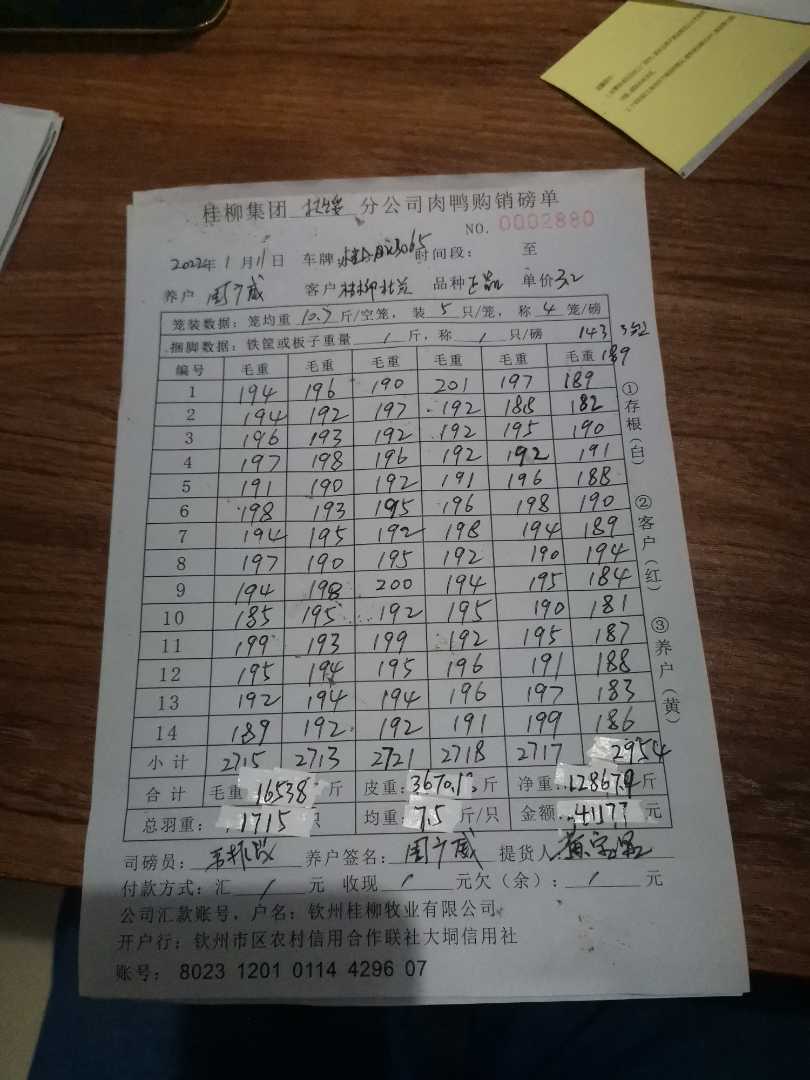 桂柳集团 扶绥 分公司肉鸭购销磅单
NO. 0002880
2022年1月11日 车牌: 时间段: 至
养户 周广威 客户 桂柳 品种 正品 单价 3.2
笼装数据: 笼均重 10.7 斤/空笼, 装 5 只/笼, 称 4 笼/磅
捆脚数据: 铁筐或板子重量 / 斤, 称 / 只/磅 143
编号 毛重 毛重 毛重 毛重 毛重 毛重 189
1 194 196 190 201 197 189
2 194 192 197 192 188 182
3 196 193 192 192 195 190
4 197 198 196 192 192 191
5 191 190 192 191 196 188
6 198 193 195 196 198 190
7 194 195 192 198 194 189
8 197 190 195 192 190 194
9 194 198 200 194 195 184
10 185 195 192 195 190 181
11 199 193 199 192 195 187
12 195 194 195 196 191 188
13 192 194 194 196 197 183
14 189 192 192 191 199 186
小计 2715 2713 2721 2718 2717 2954
合计 毛重 16538 斤 皮重: 3670.1 斤 净重: 12867.9 斤
总羽重: 1715 只 均重: 7.5 斤/只 金额: 41177 元
司磅员: 养户签名: 周广威 提货人:
付款方式: 汇 / 元 收现 / 元欠(余): / 元
公司汇款账号, 户名: 钦州桂柳牧业有限公司
开户行: 钦州市区农村信用合作联社大垌信用社
账号: 8023 1201 0114 4296 07
①存根(白)
②客户(红)
③养户(黄)